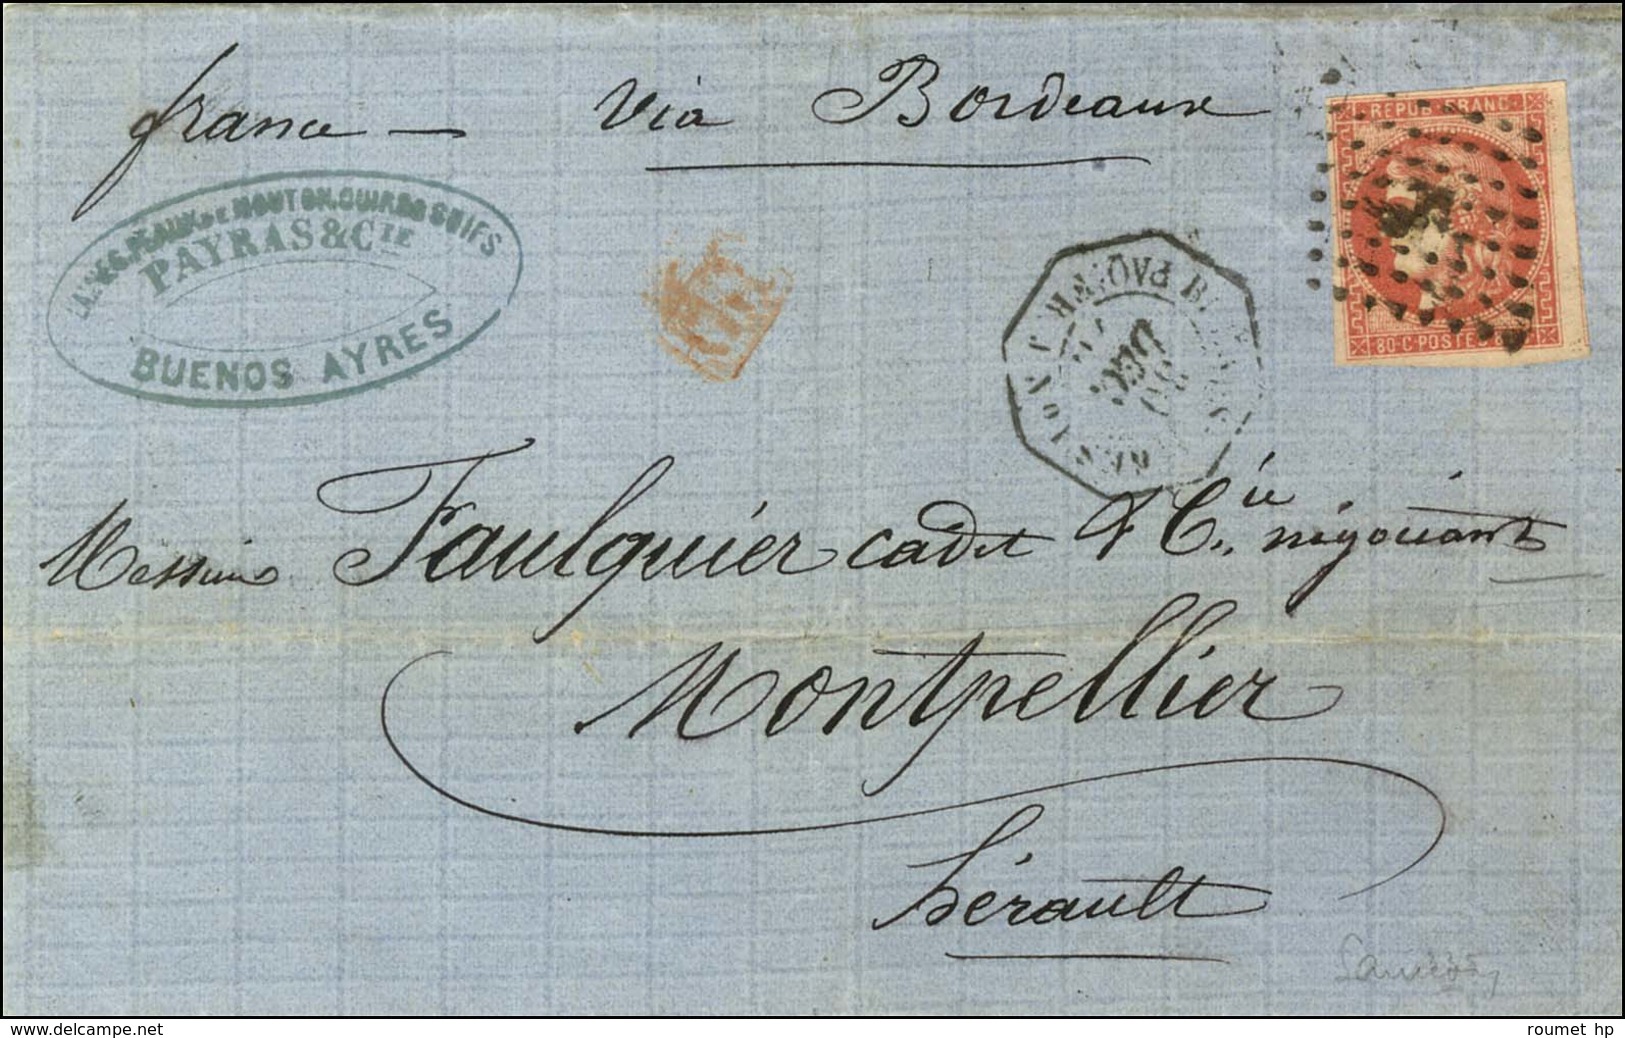 france — via Bordeaux
REPUB FRANC
80 · C · POSTES
LAINES, PEAUX DE MOUTON, CUIRS & SUIFS
PAYRAS & CIE
BUENOS AYRES
DEC
Messieurs Faulquier cadet & Cie négociants
Montpellier
hérault
www.delcampe.net
roumet hp